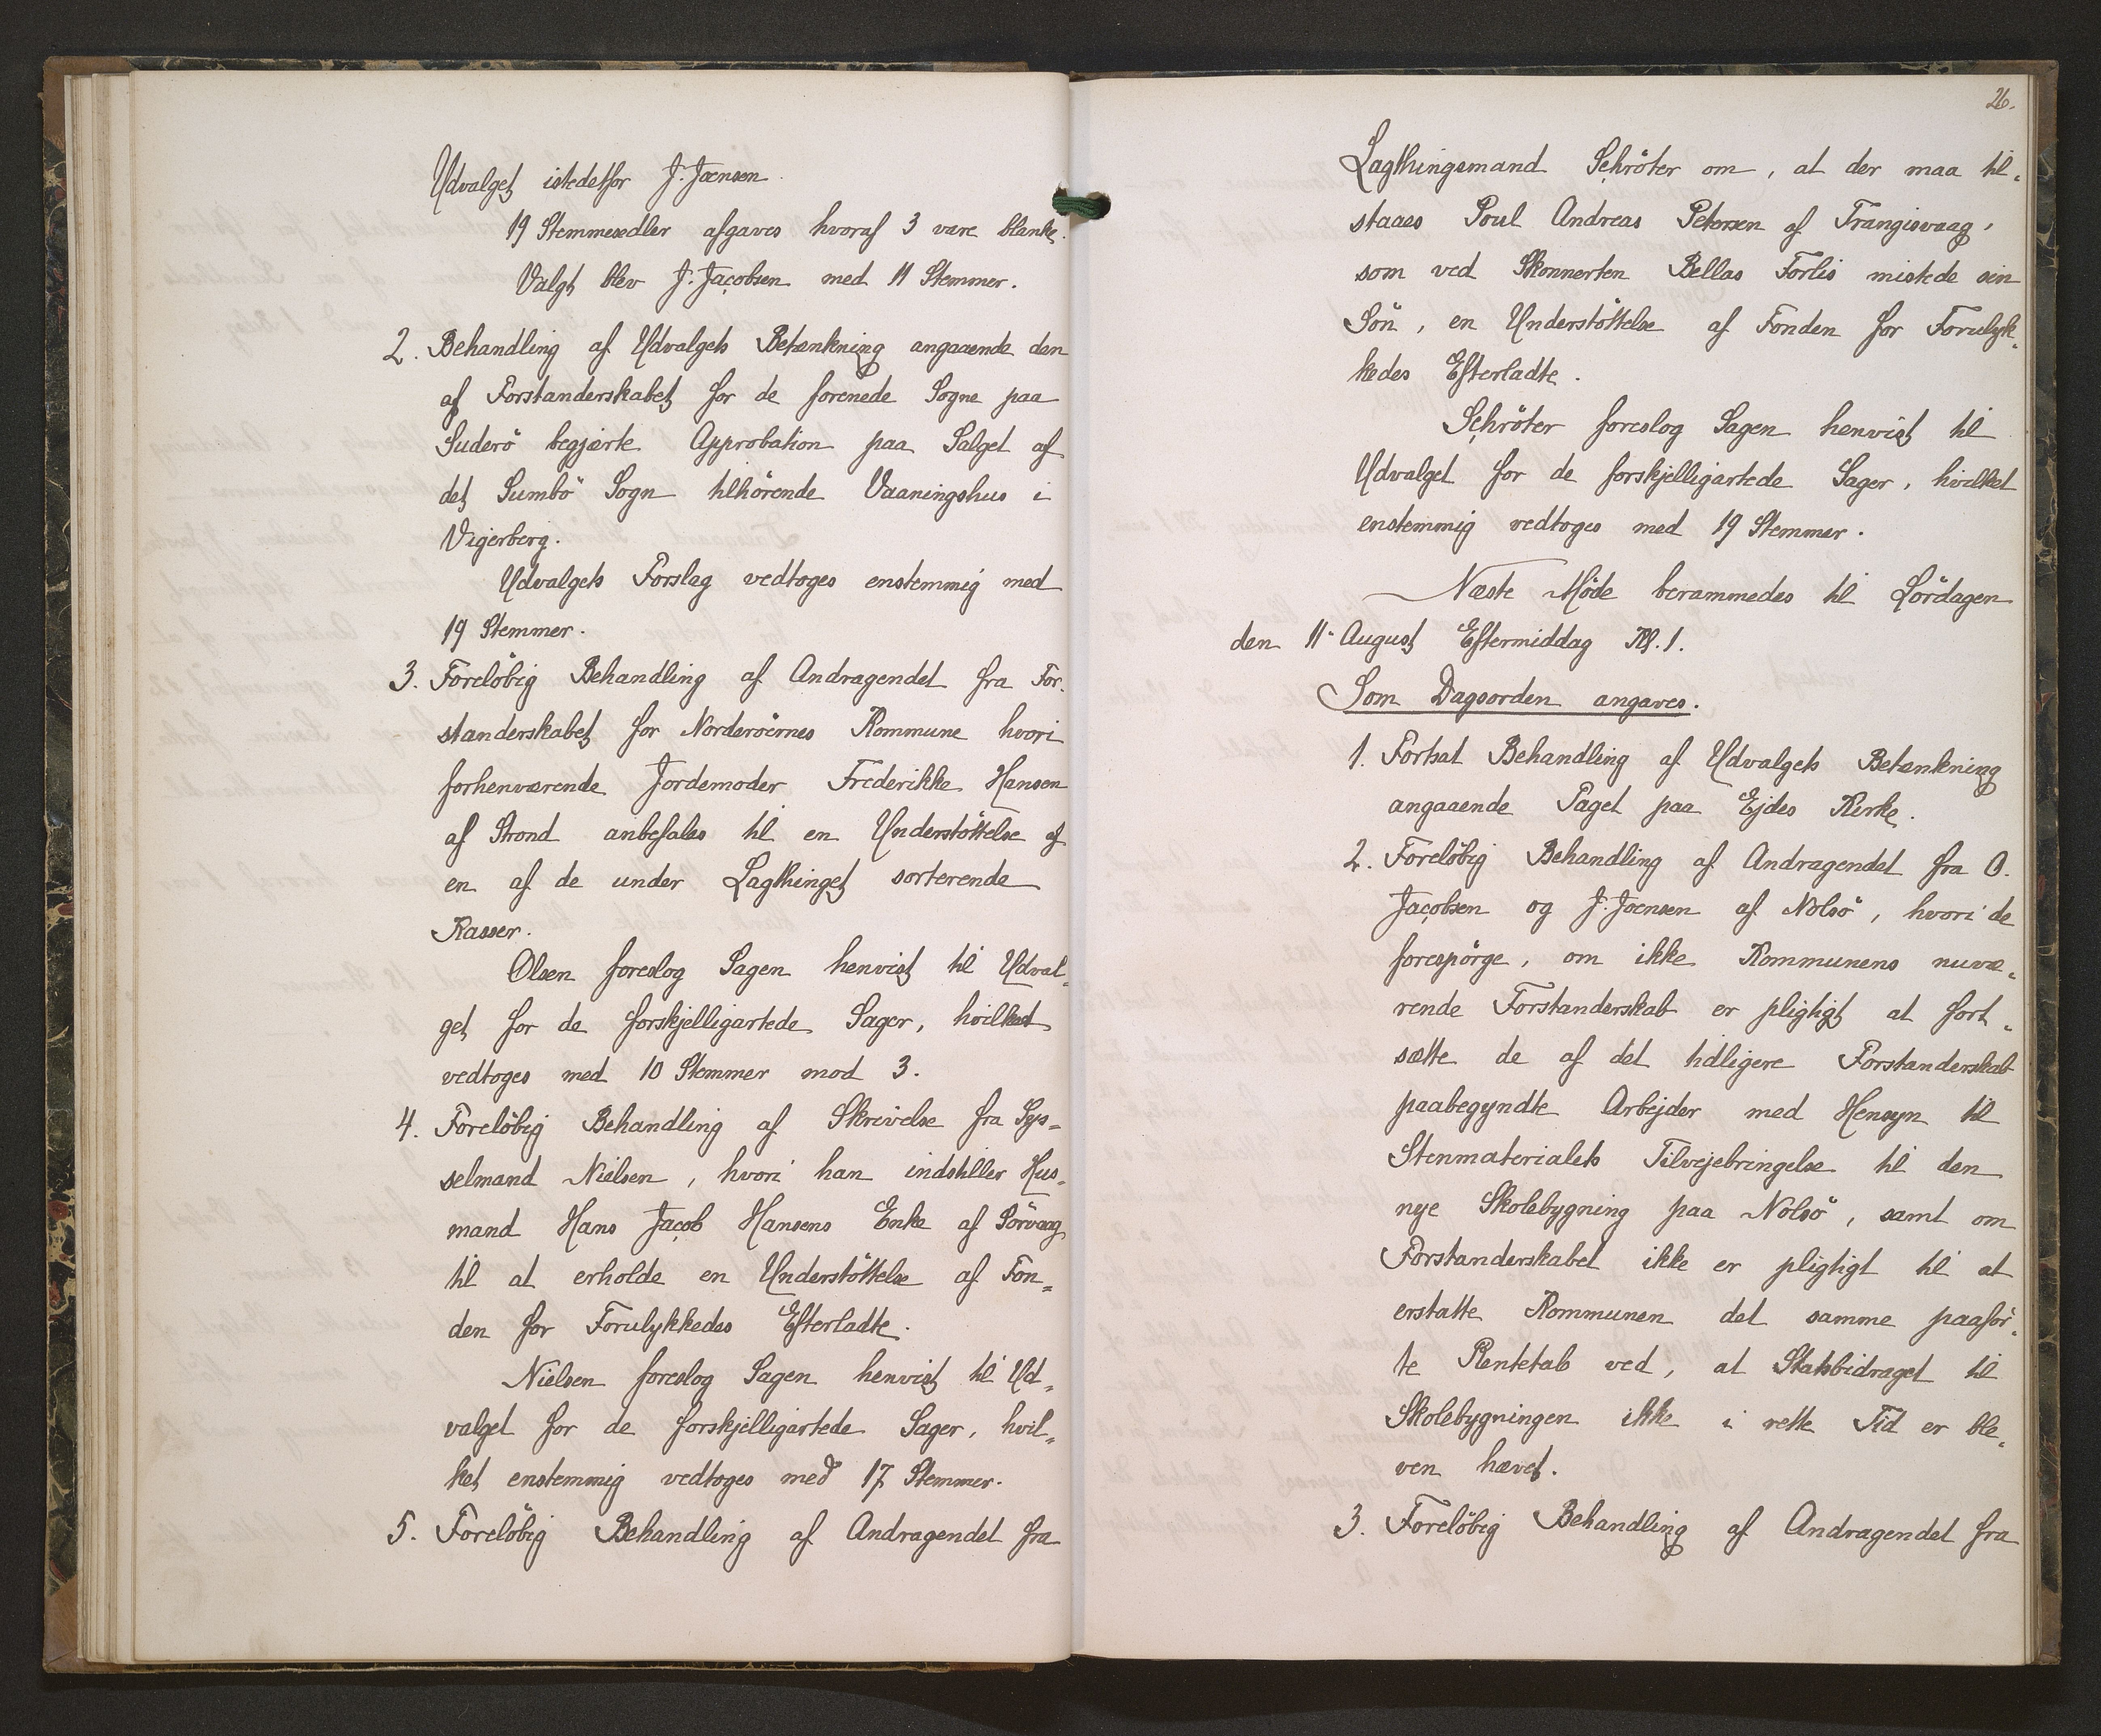 Udvalget istedetfor J. Joensen.
19 Stemmesedler afgaves hvoraf 3 vare blanke.
Valgt blev J. Jacobsen med 11 Stemmer.
2. Behandling af Udvalgets Betænkning angaaende den
af Forstanderskabet for de forenede Sogne paa
Suderö begjærte Approbation paa Salget af
det Sumbö Sogn tilhörende Vaaningshus i
Vigerberg.
Udvalgets Forslag vedtoges enstemmig med
19 Stemmer.
3. Foreløbig Behandling af Andragendet fra For-
standerskabet for Norderöernes Kommune hvori
forhenværende Jordemoder Frederikke Hansen
af Strond anbefales til en Understöttelse af
en af de under Lagthinget sorterende
Kasser.
Olsen foreslog Sagen henvist til Udval-
get for de forskjelligartede Sager, hvilket
vedtoges med 10 Stemmer mod 3.
4. Forelöbig Behandling af Skrivelse fra Sys-
selmand Nielsen, hvori han indstiller Hus-
mand Hans Jacob Hansens Enke af Sörvaag
til at erholde en Understöttelse af Fon-
den for Forulykkedes Efterladte.
Nielsen foreslog Sagen henvist til Ud-
valget for de forskjelligartede Sager, hvil-
ket enstemmig vedtoges med 17 Stemmer.
5. Forelöbig Behandling af Andragendet fra
26.
Lagthingsmand Schröter om, at der maa til-
staaes Poul Andreas Petersen af Trangisvaag,
som ved Skonnerten Bellas Forlis mistede sin
Sön, en Understöttelse af Fonden for Forulyk-
kedes Efterladte.
Schröter foreslog Sagen henvist til
Udvalget for de forskjelligartede Sager, hvilket
enstemmig vedtoges med 19 Stemmer.
Næste Möde berammedes til Lördagen
den 11. August Eftermiddag Kl. 1.
Som Dagsorden angaves.
1. Fortsat Behandling af Udvalgets Betænkning
angaaende Taget paa Ejdes Kirke.
2. Forelöbig Behandling af Andragendet fra O.
Jacobsen og J. Joensen af Nolsö, hvori de
forespörge, om ikke Kommunens nuvæ-
rende Forstanderskab er pligtigt at fort-
sætte de af det tidligere Forstanderskab
paabegyndte Arbejder med Hensyn til
Stenmaterialets Tilvejebringelse til den
nye Skolebygning paa Nolsö, samt om
Forstanderskabet ikke er pligtigt til at
erstatte Kommunen det samme paaför-
te Rentetab ved, at Statsbidraget til
Skolebygningen ikke i rette Tid er ble-
ven hævet.
3. Forelöbig Behandling af Andragendet fra